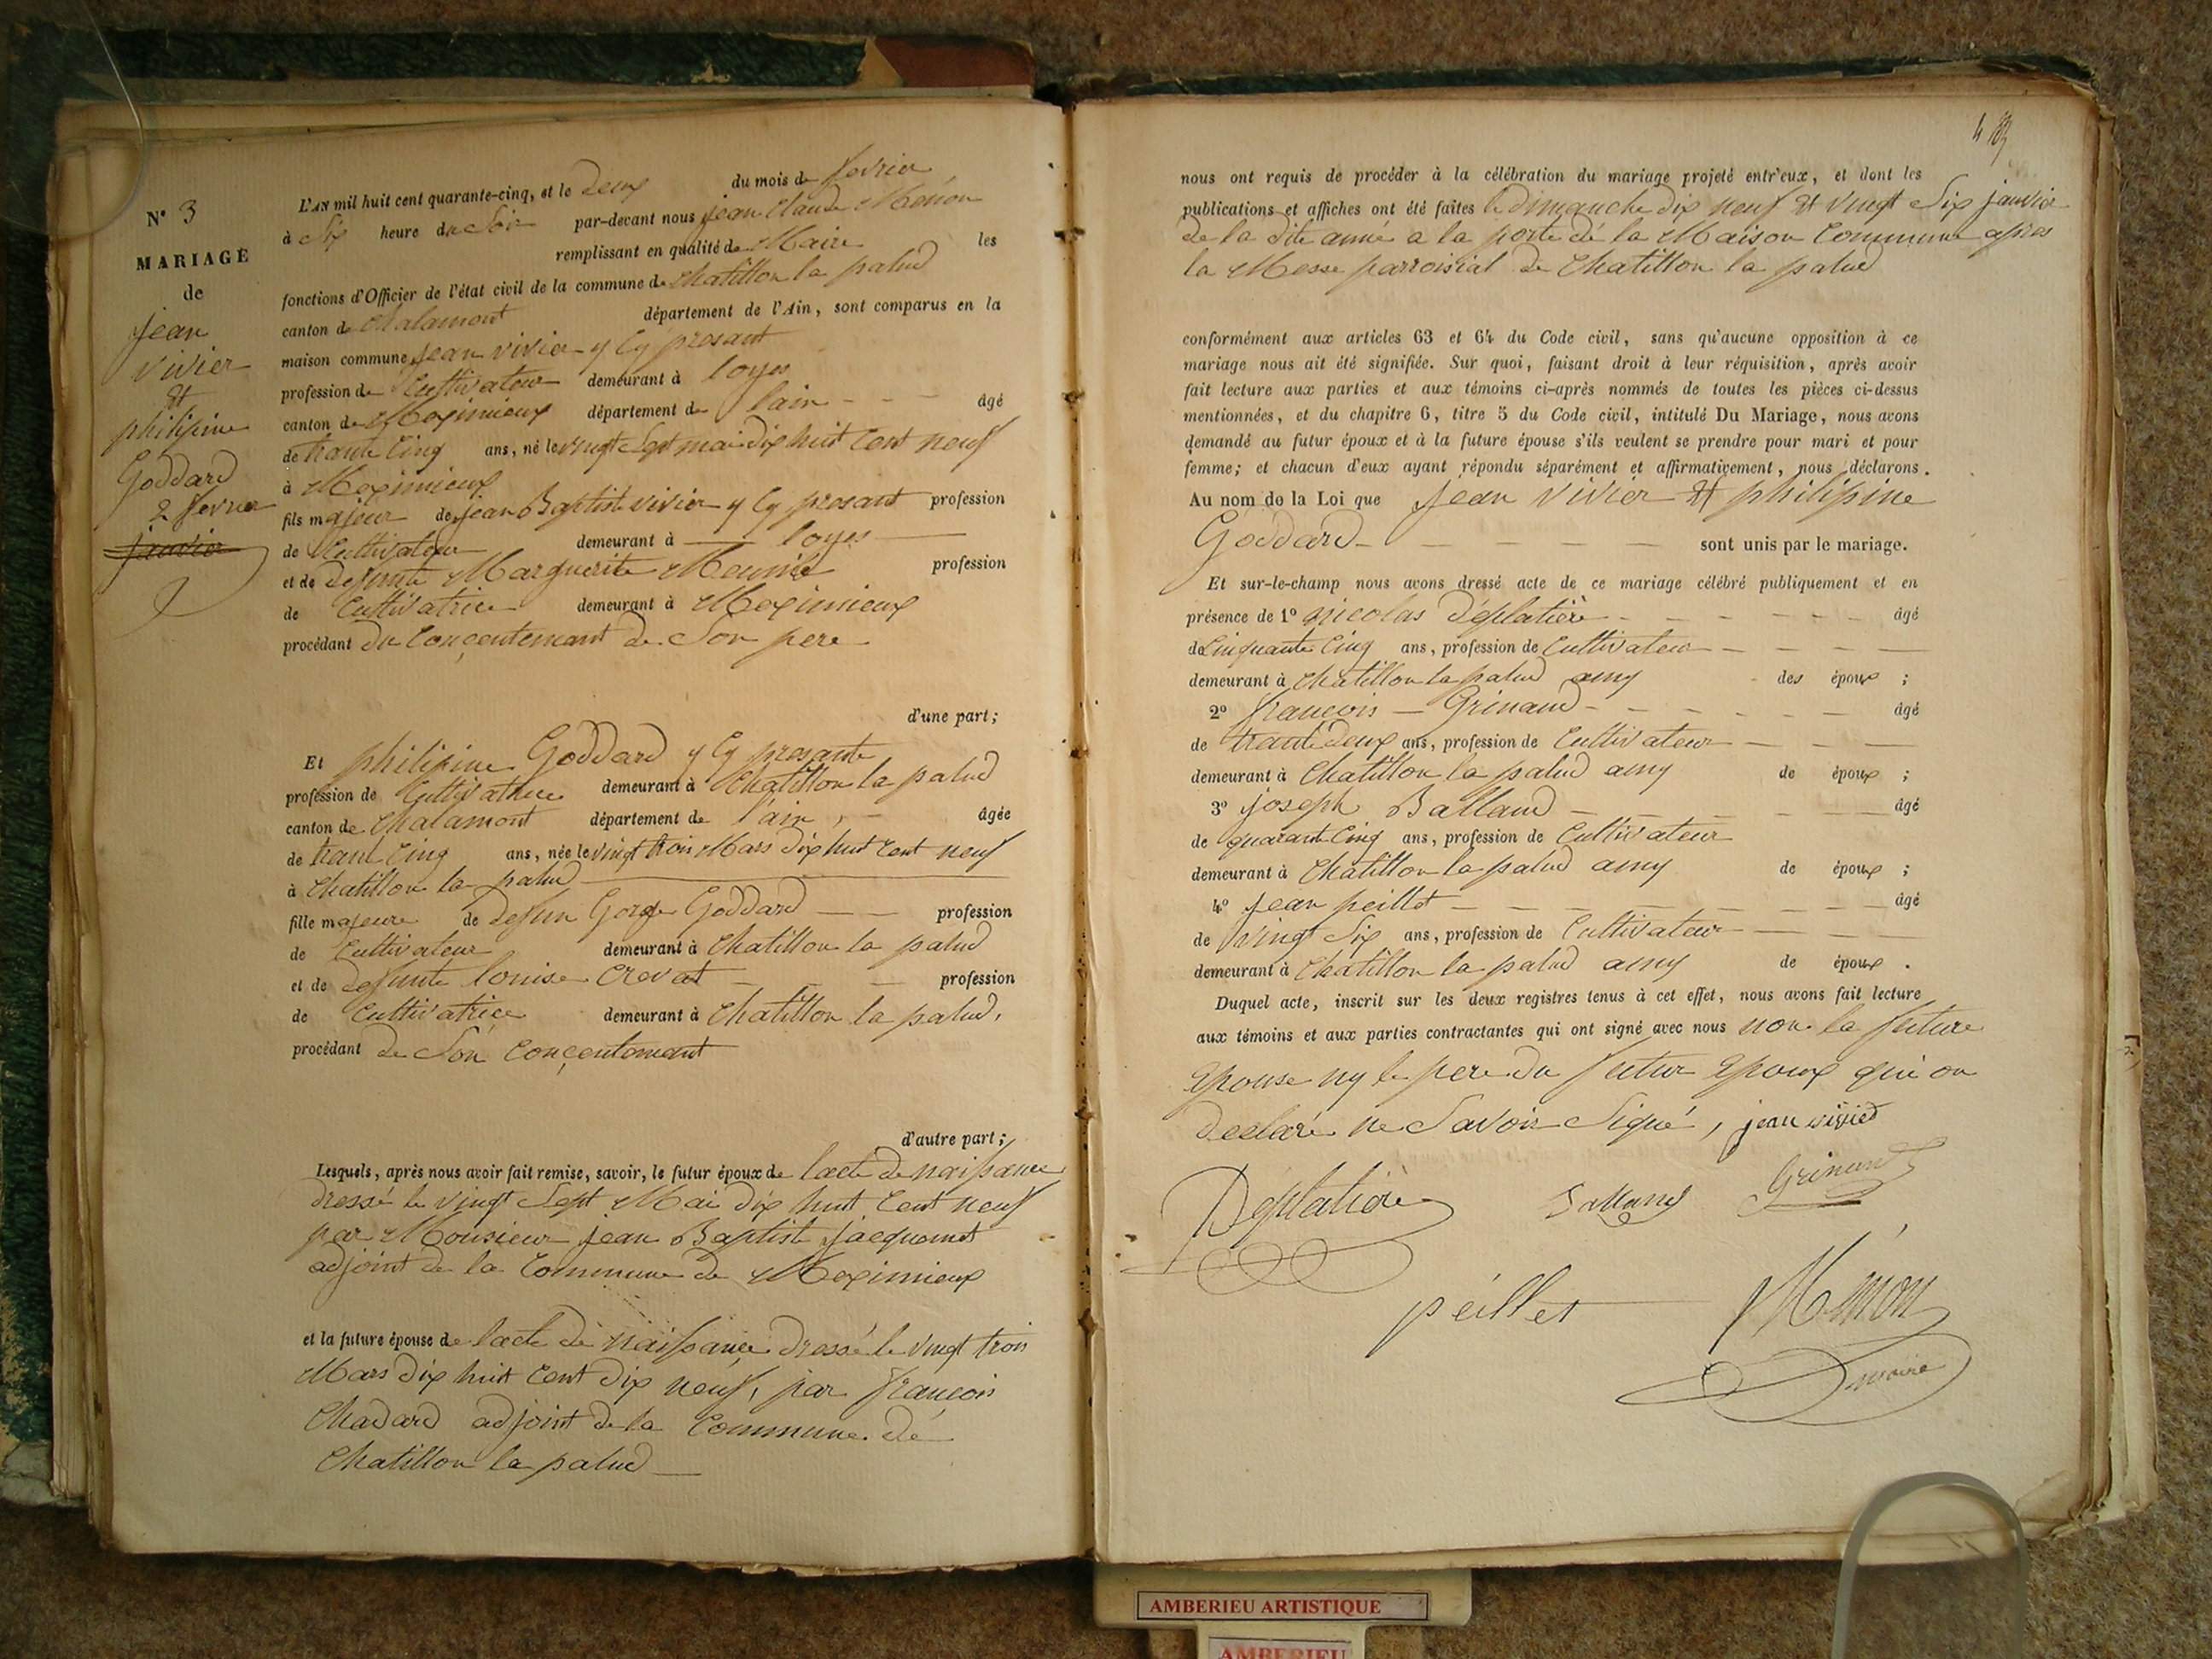 N° 3
MARIAGE
de
jean
vivier
et
philipine
Goddard
2 fevrier
janvier
L'AN mil huit cent quarante-cinq, et le deux du mois de fevrier
à Six heure du Soir par-devant nous jean Claude Menon
remplissant en qualité de Maire les
fonctions d'Officier de l'état civil de la commune de chatillon la palud
canton de chalamont département de l'Ain, sont comparus en la
maison commune, jean vivier y Cy presant
profession de Cultivateur demeurant à loyes
canton de Meximieux département de lain âgé
de trante Cinq ans, né le vingt Sept mai dix huit Cent neuf
à Meximieux
fils majeur de jean Baptiste vivier y Cy presant profession
de Cultivateur demeurant à loyes
et de defunte Marguerite Meunié profession
de Cultivatrice demeurant à Meximieux
procédant du Conçentemant de Son pere
d'une part;
Et philipine Goddard y Cy presante
profession de Cultivatrice demeurant à Chatillon la palud
canton de Chalamont département de l'ain, âgée
de trant Cinq ans, née le vingt trois Mars dix huit Cent neuf
à Chatillon la palud
fille majeure de defun Gorge Goddard profession
de Cultivateur demeurant à Chatillon la palud
et de defunte louise Crevat profession
de Cultivatrice demeurant à Chatillon la palud,
procédant de Son Conçentemant
d'autre part;
Lesquels, après nous avoir fait remise, savoir, le futur époux de lacte de naissance
dressé le vingt Sept Mai dix huit Cent neuf
par Monsieur jean Baptiste jacquemet
adjoint de la Commune de Meximieux
et la future épouse de lacte de naissance dressé le vingt trois
Mars dix huit Cent dix neuf, par françois
Chadard adjoint de la Commune de
Chatillon la palud
nous ont requis de procéder à la célébration du mariage projeté entr'eux, et dont les
publications et affiches ont été faites le dimanche dix neuf et vingt Six janvier
de la dite année a la porte de la Maison Commune apres
la Messe parroisial de Chatillon la palud
conformément aux articles 63 et 64 du Code civil, sans qu'aucune opposition à ce
mariage nous ait été signifiée. Sur quoi, faisant droit à leur réquisition, après avoir
fait lecture aux parties et aux témoins ci-après nommés de toutes les pièces ci-dessus
mentionnées, et du chapitre 6, titre 5 du Code civil, intitulé Du Mariage, nous avons
demandé au futur époux et à la future épouse s'ils veulent se prendre pour mari et pour
femme; et chacun d'eux ayant répondu séparément et affirmativement, nous déclarons.
Au nom de la Loi que jean vivier et philipine
Goddard sont unis par le mariage.
Et sur-le-champ nous avons dressé acte de ce mariage célébré publiquement et en
présence de 1° nicolas Déplatière âgé
de Cinquante Cinq ans, profession de Cultivateur
demeurant à Chatillon la palud amy des époux ;
2° françois Grinand âgé
de trante deux ans, profession de Cultivateur
demeurant à Chatillon la palud amy de époux ;
3° joseph Balland âgé
de quarant Cinq ans, profession de Cultivateur
demeurant à Chatillon la palud amy de époux ;
4° jean peillet âgé
de vingt Six ans, profession de Cultivateur
demeurant à Chatillon la palud amy de époux .
Duquel acte, inscrit sur les deux registres tenus à cet effet, nous avons fait lecture
aux témoins et aux parties contractantes qui ont signé avec nous non la future
Epouse ny le pere du futur Epoux qui on
declaré ne Savoir Signé, jean vivied
Déplatière Balland Grinand
peillet Menon
maire
AMBERIEU ARTISTIQUE
AMBERIEU